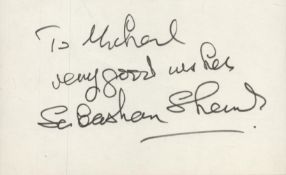 To Michael
very good wishes
Sebastian Shaw